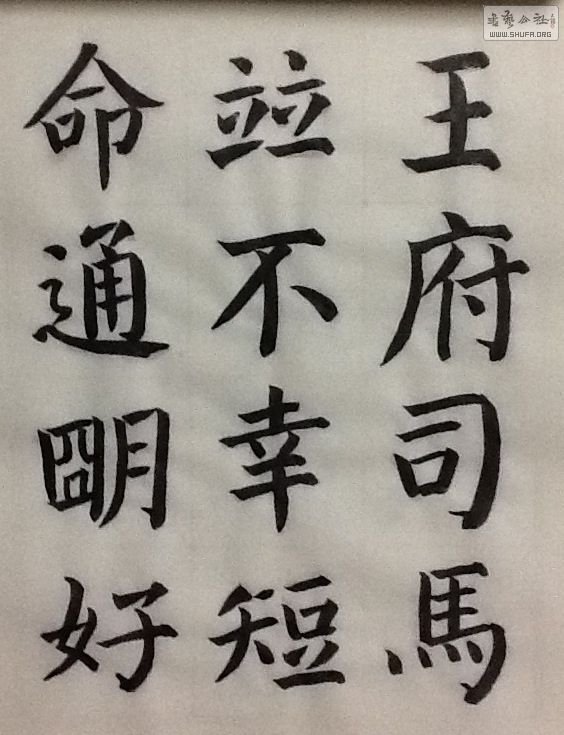 王府司馬
竝不幸短
命通朙好
書藝公社
WWW.SHUFA.ORG